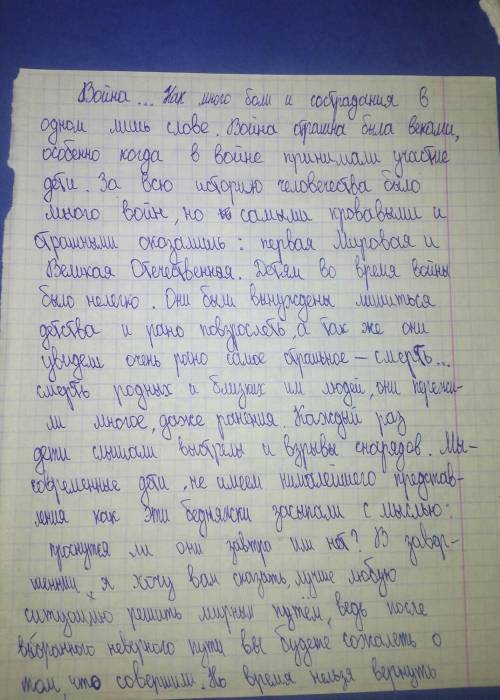 Война... Как много боли и сострадания в
одном лишь слове. Война страшна была веками,
особенно когда в войне принимали участие
дети. За всю историю человечества было
много войн, но самыми кровавыми и
страшными оказались: первая Мировая и
Великая Отечественная. Детям во время войны
было нелегко. Они были вынуждены лишиться
детства и рано повзрослеть, а так же они
увидели очень рано самое страшное – смерть...
смерть родных и близких им людей, они пережи-
ли многое, даже ранения. Каждый раз
дети слышали выстрелы и взрывы снарядов. Мы-
современные дети, не имеем ни малейшего представ-
ления как эти бедняжки засыпали с мыслью:
проснутся ли они завтра или нет? В завер-
шении, я хочу вам сказать, лучше любую
ситуацию решить мирным путём, ведь после
выбранного неверного пути вы будете сожалеть о
том, что совершили. Но время нельзя вернуть